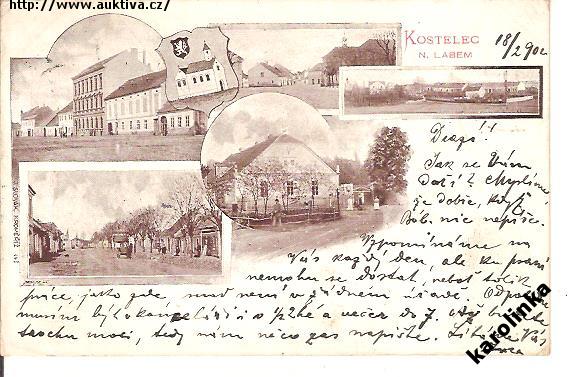 http://www.auktiva.cz/
KOSTELEC
N. LABEM
18/2 902
Drazí!
Jak se Vám
daří? Myslíme
je dobře, když
Bob. nic nepíše.
Vzpomínáme na
Vás každý den, ale ku psaní
nemohu se dostat, neboť tolik
práce, jako zde, snad není v žádném
musím být v kanceláři i o ½2hé a večer do 7. Až budete
trochu moci, tedy nám něco zas napište. Líbá Vás
karolinka